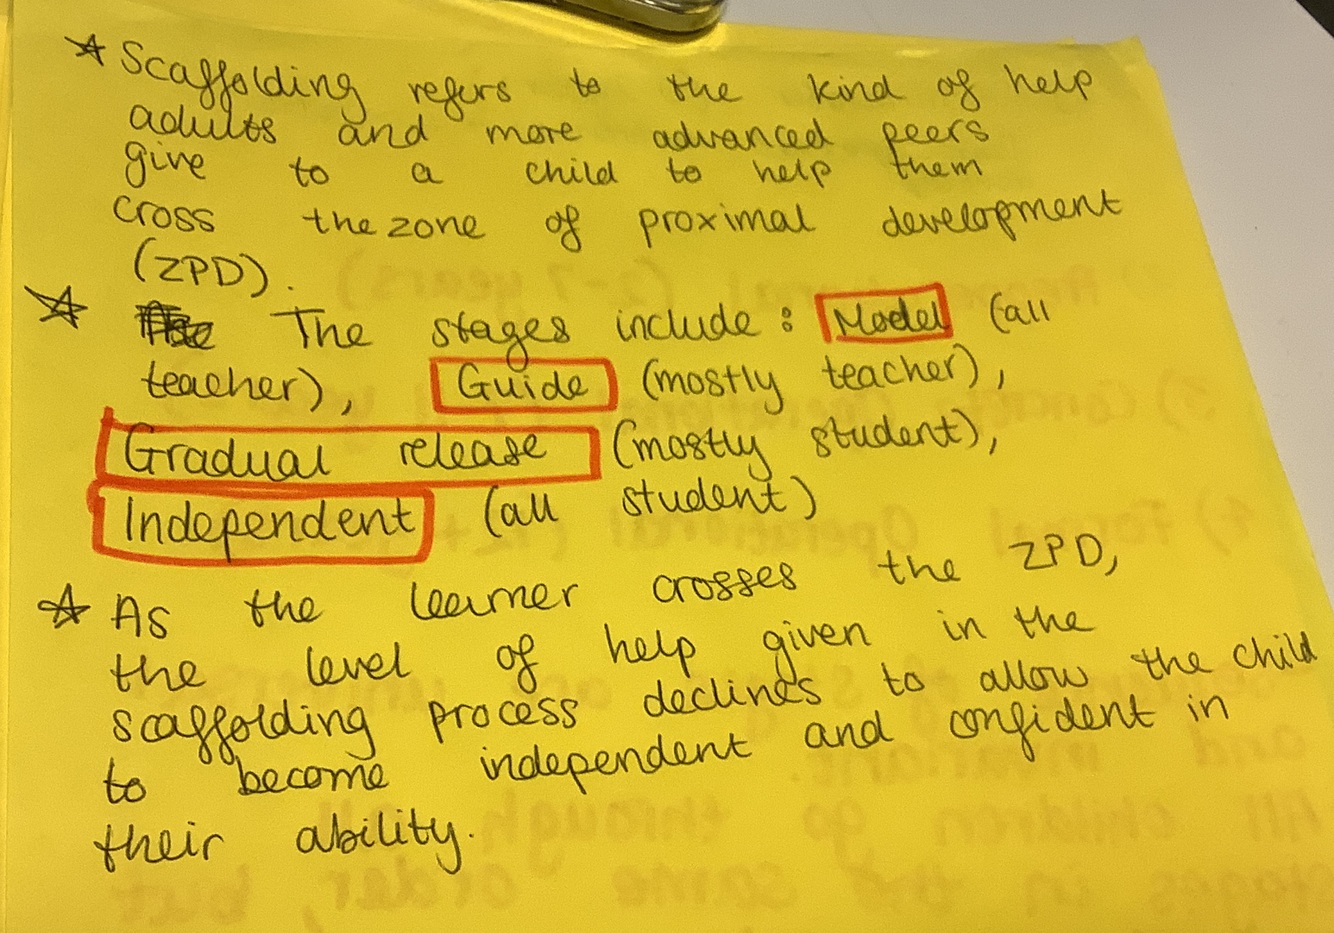 ☆ Scaffolding refers to the kind of help
adults and more advanced peers
give to a child to help them
cross the zone of proximal development
(ZPD).
☆ The stages include: Model (all
teacher), Guide (mostly teacher),
Gradual release (mostly student),
Independent (all student)
☆ As the learner crosses the ZPD,
the level of help given in the
scaffolding process declines to allow the child
to become independent and confident in
their ability.